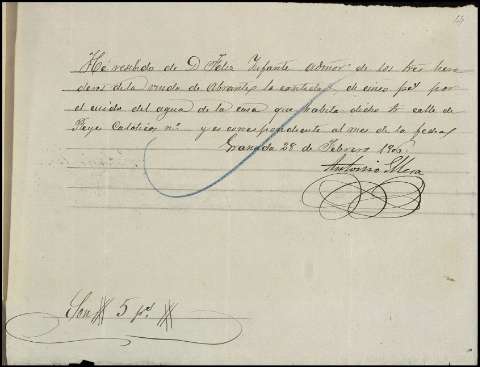 Hé recibido de D. Feliz Ynfante admor. de los tres here
deros de la viuda de Abrantes la cantidad de cinco ptas por
el cuido del agua de la casa que habita dicho Sr calle de
Reyes Catolicos nº y es correspondiente al mes de la fecha
Granada 28 de Febrero
Antonio
Son # 5 ptas #